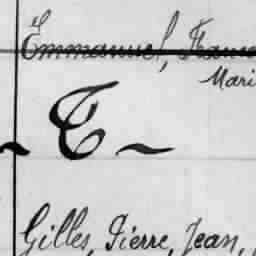 Emmanuel, Franc
Mari
~ T ~
Gilles, Pierre, Jean,